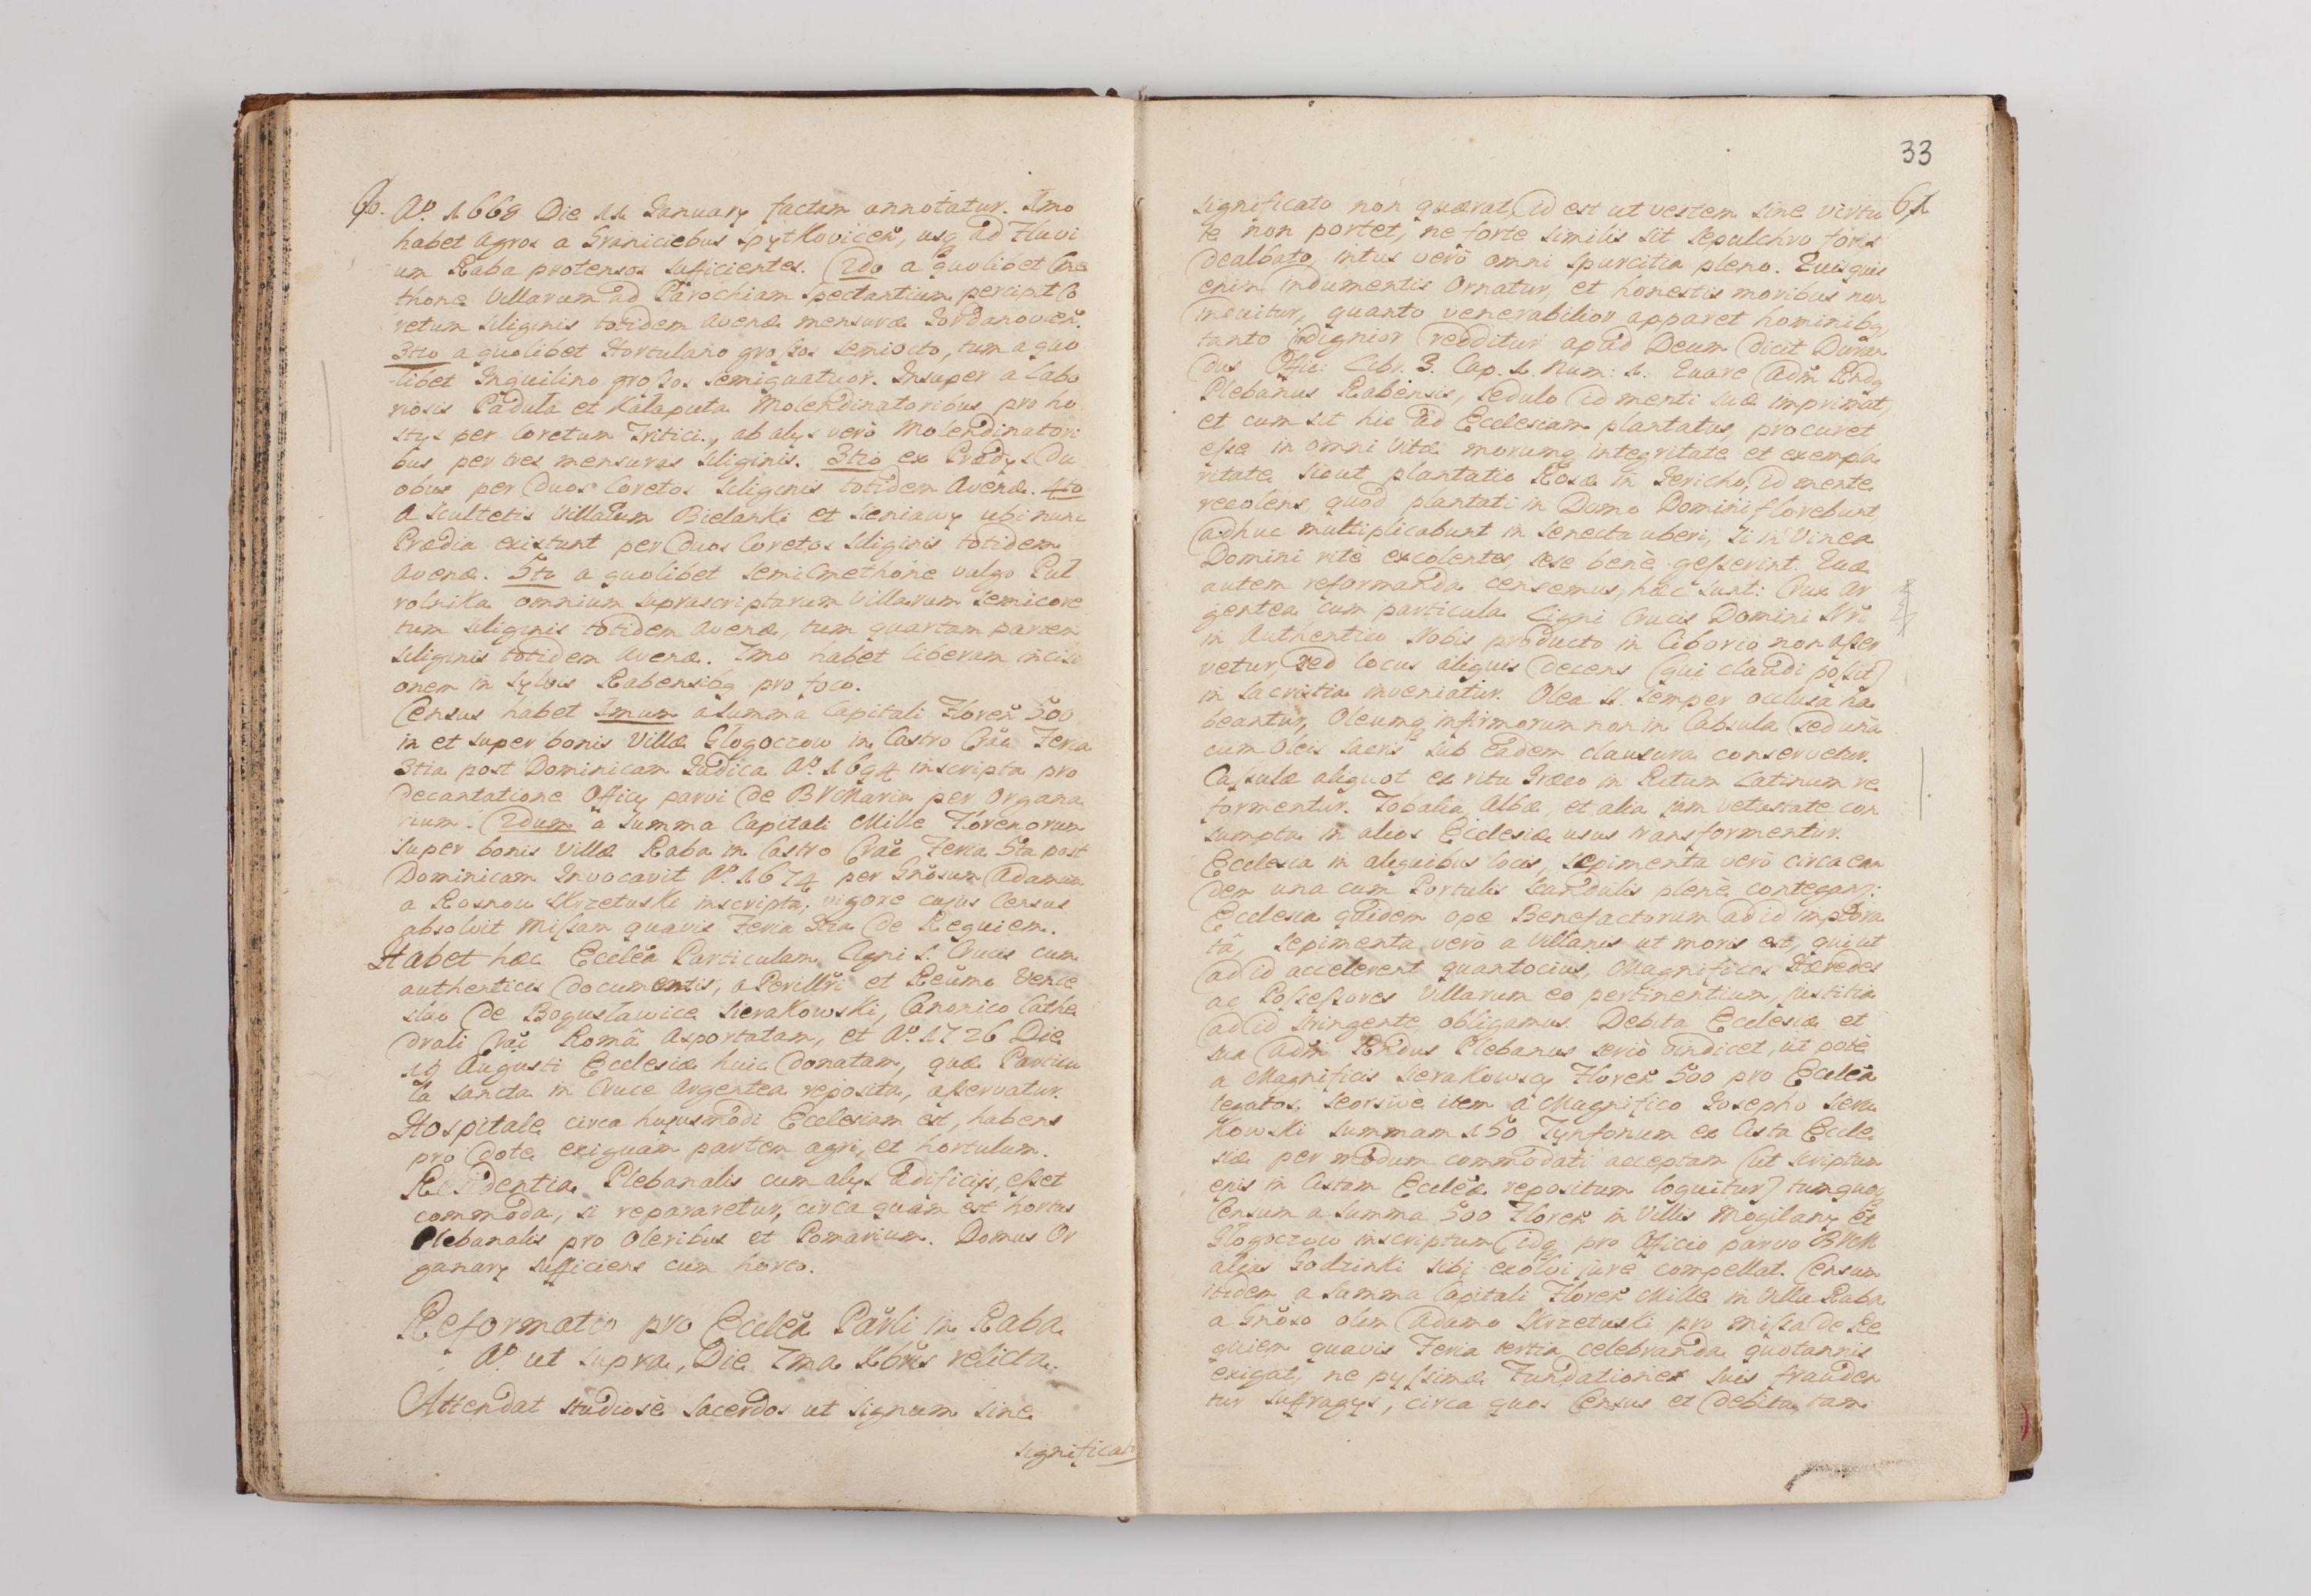 60. Aº. 1668 Die 11 January factam annotatur. Imo
habet Agros a Graniciebus Spytkovicen̄, usq̨ ad Fluvi
um Raba protensos sufficientes. 2do a quolibet Cme
thone Villarum ad Parochiam spectantium percipit Co
retum siliginis totidem avenæ mensuræ Jordanovien̄.
3tio a quolibet Hortulano grossos semiocto, tum a quo
libet Inquilino grossos semiquatuor. Insuper a Labo
riosis Paduła et Kałaputa Molendinatoribus pro ho
stys per Coretum Tritici, ab alys verò Molendinatori
bus per tres mensuras Siliginis. 3tio ex Prædys Du
obus per duos Coretos Siliginis totidem Avenæ. 4to
A Scultetis Villarum Bielanki et Sieniawy ubi nunc
Prædia existunt per duos Coretos Siliginis totidem
Avenæ. 5to a quolibet semiCmethone vulgo Puł
rolnika omnium supruscriptarum Villarum semicore
tum siliginis totidem Avenæ, tum quartam partem
Siliginis totidem Avenæ. Imo habet liberam incisi
onem in Sylvis Rabensibq̨ pro foco.
Census habet 1mum a summa Capitali Floren̄ 500
in et super bonis Villæ Głogoczow in Castro Crac̄ Feria
3tia post Dominicam Judica Aº. 1694 inscripta pro
decantatione Officy parvi de BVMaria per Organa
rium. 2dum a Summa Capitali Mille Florenorum
super bonis Villæ Raba in Castro Crac̄ Feria 5ta post
Dominicam Invocavit Aº. 1674 per Gn̄osum Adamum
a Rosnow Skrzetuski inscripta, vigore cujus Census
absolvit Missam quavis Feria 3tia de Requiem.
Habet hæc Eccle̅a Particulam Ligni S. Crucis cum
authenticis documentis, a Perillr̄i et Re̅u̅mo Vence
slao de Bogusławice Sierakowski, Canonico Cathe
drali Crac̄ Româ Asportatam, et Aº. 1726 Die
19 Augusti Ecclesiæ huic donatam, quæ Particu
la Sancta in Cruce Argentea reposita, asservatur.
Hospitale circa hujusmodi Ecclesiam est, habens
pro dote exiguam partem agri, et hortulum.
Residentia Plebanalis cum alys Ædificijs, esset
commoda, si repararetur, circa quam est hortus
Plebanalis pro Oleribus et Pomarium. Domus Or
ganary sufficiens cum horeo.
Reformatio pro Eccle̅a Par̄li in Raba
Aº ut supra, Die 7ma Xbris relicta.
Attendat studiosè Sacerdos ut signum sine
significato
33
significato non quærat, id est ut vestem sine virtu 61
te non portet, ne forte similis sit Sepulchro foris
dealbato, intus verò omni spurcitia pleno. Quisquis
enim indumentis Ornatur, et honestis moribus non
induitur, quanto venerabilior apparet hominibq̨,
tanto indignior redditur apud Deum dicit Duran
dus Offic: Libr. 3. Cap. 1. Num: 1. Quare Adm̄ Rndq̨
Plebanus Rabensis, sedulo id menti suæ imprimat,
et cum sit hic ad Ecclesiam plantatus, procuret
esse in omni Vitæ morumq̨ integritate et exempla
ritate sicut plantatio Rosæ in Jericho, id mente
recolens, quod plantati in Domo Domini florebunt,
adhuc multiplicabunt in senecta uberi, si in Vinea
Domini ritè excolentes, sese benè gesserint. Quæ
autem reformanda censemus, hæc sunt: Crux Ar
gentea cum particula Ligni Crucis Domini Nr̄i
in Authentico Nobis producto in Ciborio non asser
vetur, sed locus aliquis decens (qui claudi possit)
in Sacristia inveniatur. Olea S. semper occlusa ha
beantur, Oleumq̨ infirmorum non in Capsula sed una
cum Oleis Sacris sub eadem clausura conservetur.
Cassulæ aliquot ex ritu Græco in Ritum Latinum re
formentur. Tobalia Albæ, et alia jam vetustate con
sumpta in alios Ecclesiæ usus transformentur.
Ecclesia in aliquibus locis, sepimenta verò circa ean
dem una cum Portulis Scandulis plenè contegant:
Ecclesia quidem ope Benefactorum ad id implora
tâ, sepimenta verò a Villanis ut moris est, qui ut
ad id accelerent quantocius, Magnificos Hæredes
ac Possessores Villarum eo pertinentium, justitia
ad id stringente, obligamus. Debita Ecclesiæ et
sua Adm̄ Rndus Plebanus seriò vindicet, ut pote
a Magnificis Sierakowscy Floren̄ 500 pro Eccle̅a
legatos, seorsivè item a Magnifico Josepho Siera
kowski summam 150 Tynfonum ex Cista Eccle
siæ per modum commodati acceptam (ut scriptum
ejus in Cistam Eccle̅æ repositum loquitur) tum quoq̨
Censum a Summa 500 Floren̄ in Villis Mogilany et
Głogoczow inscriptum, idq̨ pro Officio parvo BVM
alias Godzinki sibi exolvi jure compellat. Censum
itidem a Summa Capitali Floren̄ Mille in Villa Raba
a Gn̄oso olim Adamo Skrzetuski pro Missa de Re
quiem quavis Feria tertia celebranda quotannis
exigat, ne pyssimæ Fundationes suis frauden
tur suffragys, circa quos Census et debita, tam